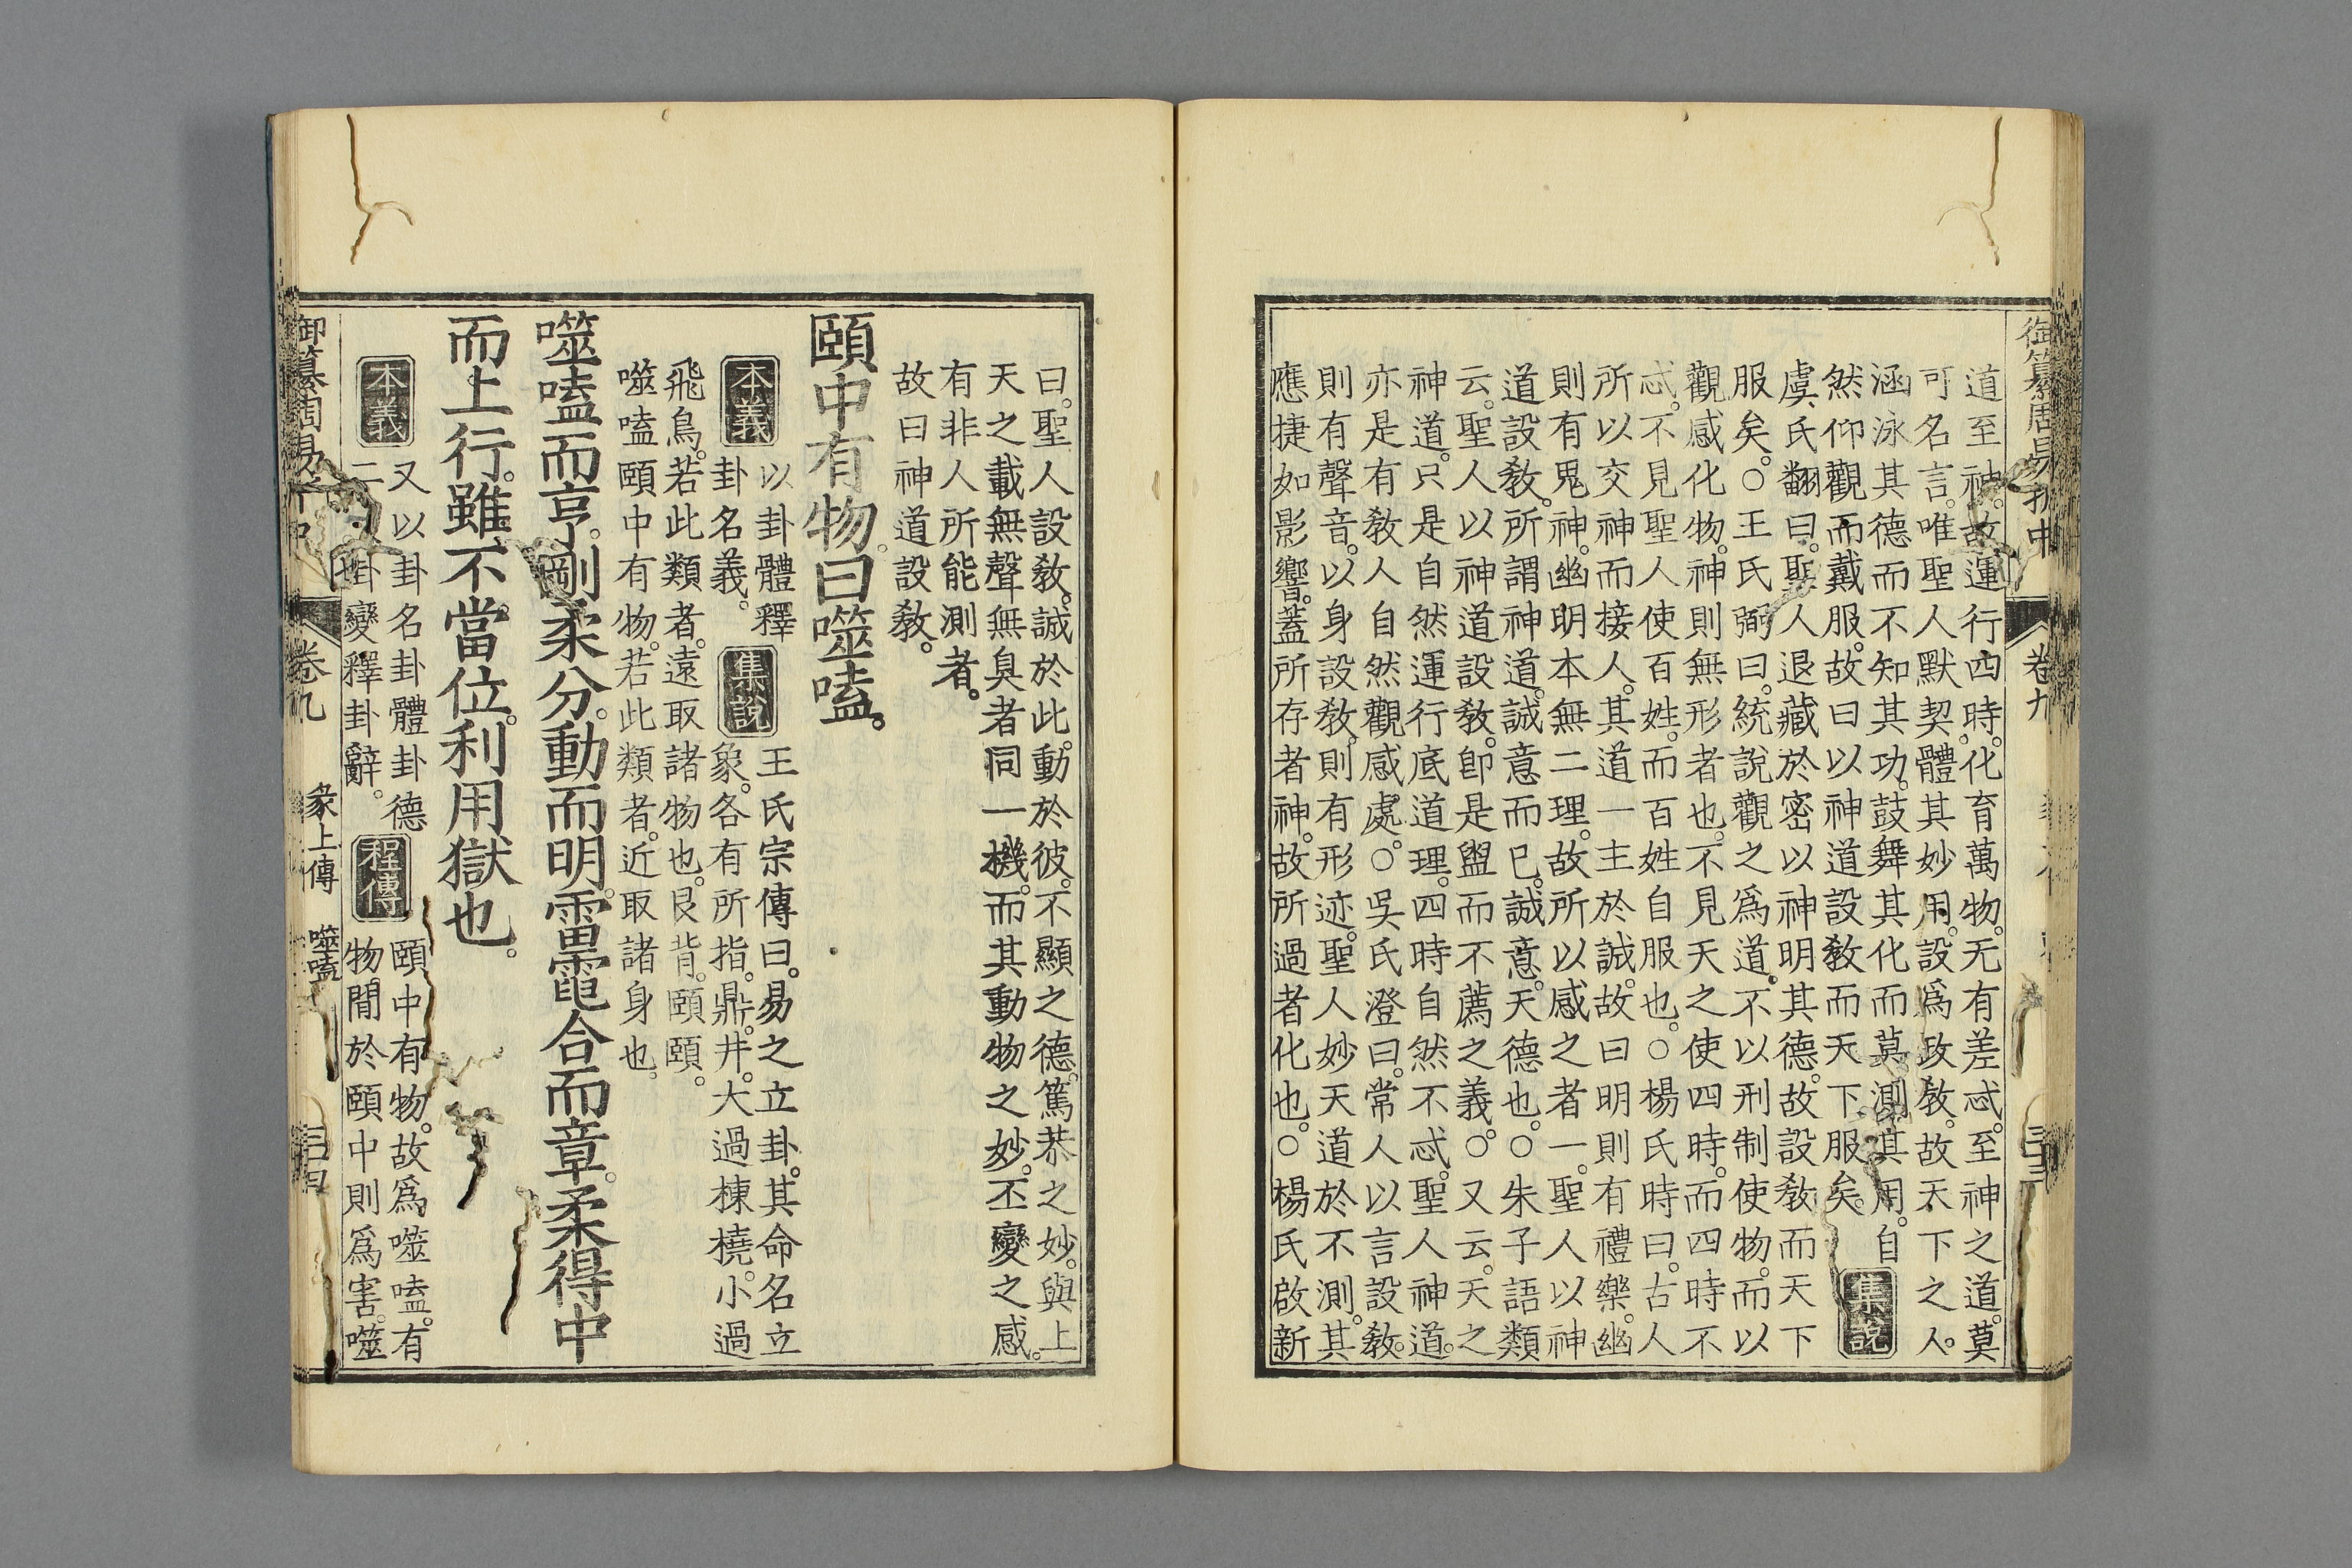 御纂周易折中 卷九
道至神。故運行四時。化育萬物。无有差忒。至神之道。莫
可名言。唯聖人默契。體其妙用。設爲政敎。故天下之人。
涵泳其德而不知其功。鼓舞其化而莫測其用。自
然仰觀而戴服。故曰以神道設敎而天下服矣。集說
虞氏翻曰。聖人退藏於密以神明其德。故設敎而天下
服矣。○王氏弼曰。統說觀之爲道。不以刑制使物。而以
觀感化物。神則無形者也。不見天之使四時。而四時不
忒。不見聖人使百姓。而百姓自服也。○楊氏時曰。古人
所以交神而接人。其道一主於誠。故曰明則有禮樂。幽
則有鬼神。幽明本無二理。故所以感之者一。聖人以神
道設敎。所謂神道。誠意而已。誠意。天德也。○朱子語類
云。聖人以神道設敎。卽是盥而不薦之義。○又云。天之
神道。只是自然運行底道理。四時自然不忒。聖人神道。
亦是有敎人自然觀感處。○吳氏澄曰。常人以言設敎。
則有聲音。以身設敎。則有形迹。聖人妙天道於不測。其
應捷如影響。蓋所存者神。故所過者化也。○楊氏啟新
曰。聖人設敎。誠於此。動於彼。不顯之德。篤恭之妙。與上
天之載無聲無臭者同一機。而其動物之妙。丕變之感。
有非人所能測者。
故曰神道設敎。
頤中有物。曰噬嗑。
本義 以卦體釋
卦名義。 集說 王氏宗傳曰。易之立卦。其命名立
象。各有所指。鼎。井。大過棟橈。小過
飛鳥。若此類者。遠取諸物也。艮背。頤頤。
噬嗑頤中有物。若此類者。近取諸身也。
噬嗑而亨。剛柔分。動而明。雷電合而章。柔得中
而上行。雖不當位。利用獄也。
本義 又以卦名卦體卦德
二卦變釋卦辭。 程傳 頤中有物。故爲噬嗑。有
物閒於頤中則爲害。噬
御纂周易折中 卷九 彖上傳 噬嗑 三四